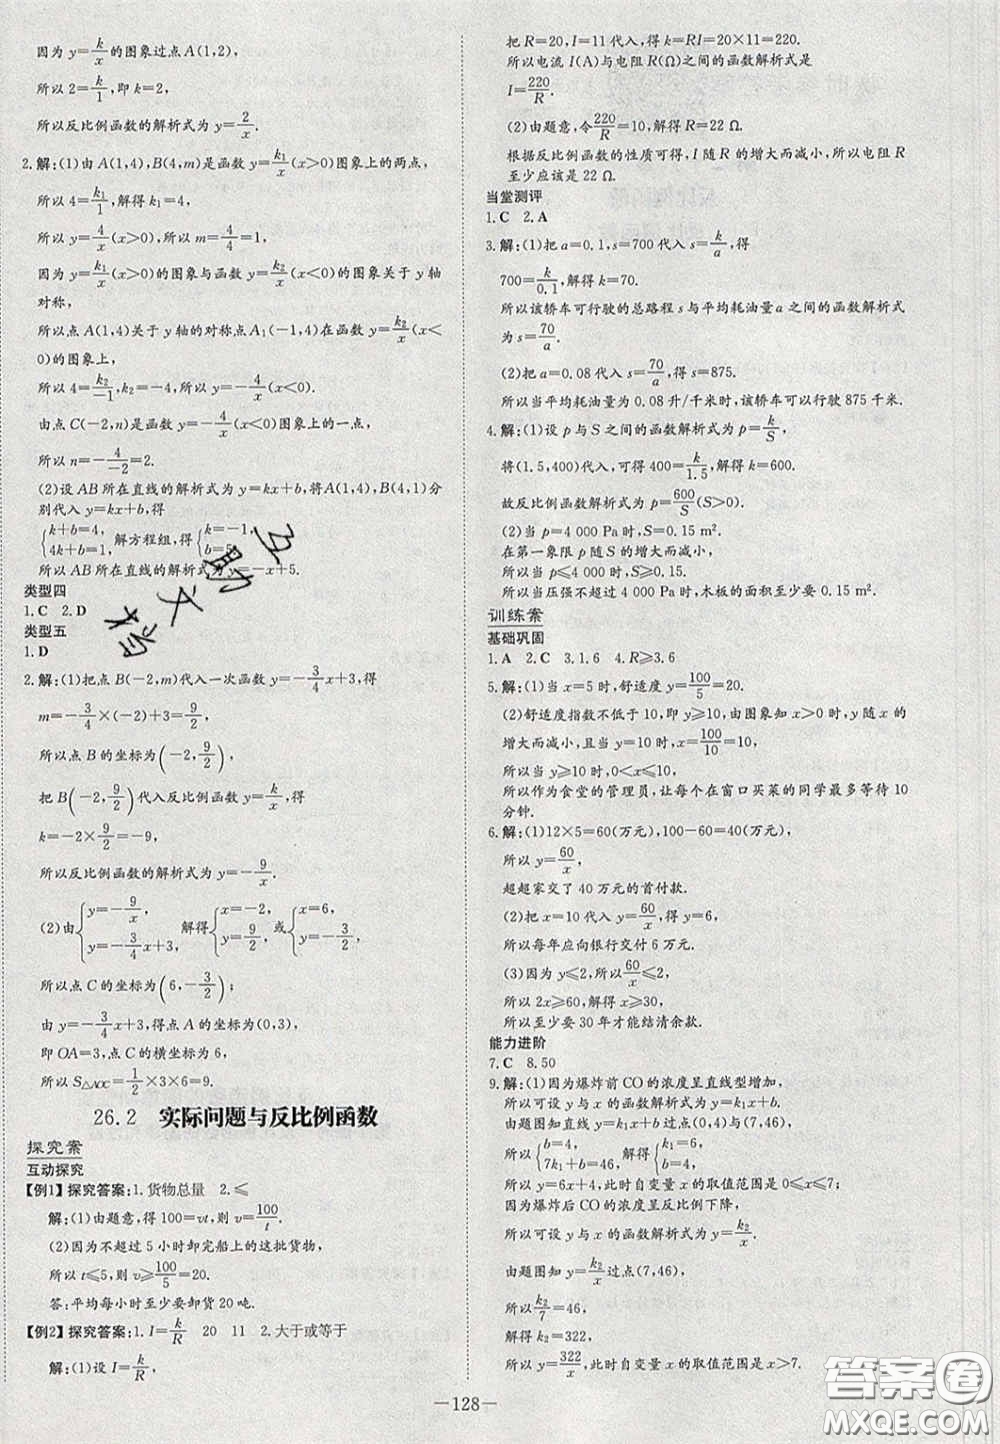 因为 y=k/x 的图象过点 A(1,2),
所以 2=k/1,即 k=2,
所以反比例函数的解析式为 y=2/x.
2.解:(1)由 A(1,4),B(4,m)是函数 y=k₁/x(x>0)图象上的两点,
所以 4=k₁/1,解得 k₁=4,
所以 y=4/x(x>0),所以 m=4/4=1,
因为 y=k₁/x(x>0)的图象与函数 y=k₂/x(x<0)的图象关于 y 轴
对称,
所以点 A(1,4)关于 y 轴的对称点 A₁(-1,4)在函数 y=k₂/x(x<
0)的图象上,
所以 4=k₂/-1,k₂=-4,所以 y=-4/x(x<0).
由点 C(-2,n)是函数 y=-4/x(x<0)图象上的一点,
所以 n=-4/-2=2.
(2)设 AB 所在直线的解析式为 y=kx+b,将 A(1,4),B(4,1)分
别代入 y=kx+b,得
{k+b=4, 4k+b=1, 解方程组,得{k=-1, b=5.
所以 AB 所在直线的解析式为 y=-x+5.
类型四
1.C 2.D
类型五
1.D
2.解:(1)把点 B(-2,m)代入一次函数 y=-3/4x+3,得
m=-3/4×(-2)+3=9/2,
所以点 B 的坐标为(-2,9/2)
把 B(-2,9/2)代入反比例函数 y=k/x,得
k=-2×9/2=-9,
所以反比例函数的解析式为 y=-9/x.
(2)由{y=-9/x, y=-3/4x+3, 解得{x=-2, y=9/2, 或{x=6, y=-3/2.
所以点 C 的坐标为(6,-3/2);
由 y=-3/4x+3,得点 A 的坐标为(0,3),
即 OA=3,点 C 的横坐标为 6,
所以 S△AOC=1/2×3×6=9.
26.2 实际问题与反比例函数
探究案
互动探究
【例1】探究答案:1.货物总量 2.≤
解:(1)由题意,得 100=vt,则 v=100/t.
(2)因为不超过 5 小时卸完船上的这批货物,
所以 t≤5,则 v≥100/5=20.
答:平均每小时至少要卸货 20 吨.
【例2】探究答案:1.I=k/R 20 11 2.大于或等于
解:(1)设 I=k/R,
把 R=20,I=11 代入,得 k=RI=20×11=220.
所以电流 I(A)与电阻 R(Ω)之间的函数解析式是
I=220/R.
(2)由题意,令220/R=10,解得 R=22 Ω.
根据反比例函数的性质可得,I 随 R 的增大而减小,所以电阻 R
至少应该是 22 Ω.
当堂测评
1.C 2.A
3.解:(1)把 a=0.1,s=700 代入 s=k/a,得
700=k/0.1,解得 k=70.
所以该轿车可行驶的总路程 s 与平均耗油量 a 之间的函数解析式
为 s=70/a.
(2)把 a=0.08 代入 s=70/a,得 s=875.
所以当平均耗油量为 0.08 升/千米时,该轿车可以行驶 875 千米.
4.解:(1)设 p 与 S 之间的函数解析式为 p=k/S,
将(1.5,400)代入,可得 400=k/1.5,解得 k=600.
故反比例函数解析式为 p=600/S(S>0).
(2)当 p=4 000 Pa 时,S=0.15 m².
在第一象限 p 随 S 的增大而减小,
所以当 p≤4 000 Pa 时,S≥0.15 m².
所以当压强不超过 4 000 Pa 时,木板的面积至少要 0.15 m².
训练案
基础巩固
1.A 2.C 3.1.6 4.R≥3.6
5.解:(1)当 x=5 时,舒适度 y=100/5=20.
(2)舒适度指数不低于 10,即 y≥10,由图象知 x>0 时,y 随 x 的
增大而减小,且当 y=10 时,x=100/10=10;
所以当 y≥10 时,0<x≤10,
所以作为食堂的管理员,让每个在窗口买菜的同学最多等待 10
分钟.
6.解:(1)12×5=60(万元),100-60=40(万元),
所以 y=60/x,
超超家交了 40 万元的首付款.
(2)把 x=10 代入 y=60/x,得 y=6,
所以每年应向银行交付 6 万元.
(3)因为 y≤2,所以60/x≤2,
所以 2x≥60,解得 x≥30,
所以至少要 30 年才能结清余款.
能力进阶
7.C 8.50
9.解:(1)因为爆炸前 CO 的浓度呈直线型增加,
所以可设 y 与 x 的函数解析式为 y=k₁x+b,
由题图知直线 y=k₁x+b 过点(0,4)与(7,46),
所以{b=4, 7k₁+b=46, 解得{k₁=6, b=4,
所以 y=6x+4,此时自变量 x 的取值范围是 0≤x≤7;
因为爆炸后 CO 的浓度呈反比例下降,
所以可设 y 与 x 的函数解析式为 y=k₂/x,
由题图知 y=k₂/x过点(7,46),
所以k₂/7=46,
解得 k₂=322,
所以 y=322/x,此时自变量 x 的取值范围是 x>7.
—128—
互助文档
答案圈
MXQE.COM